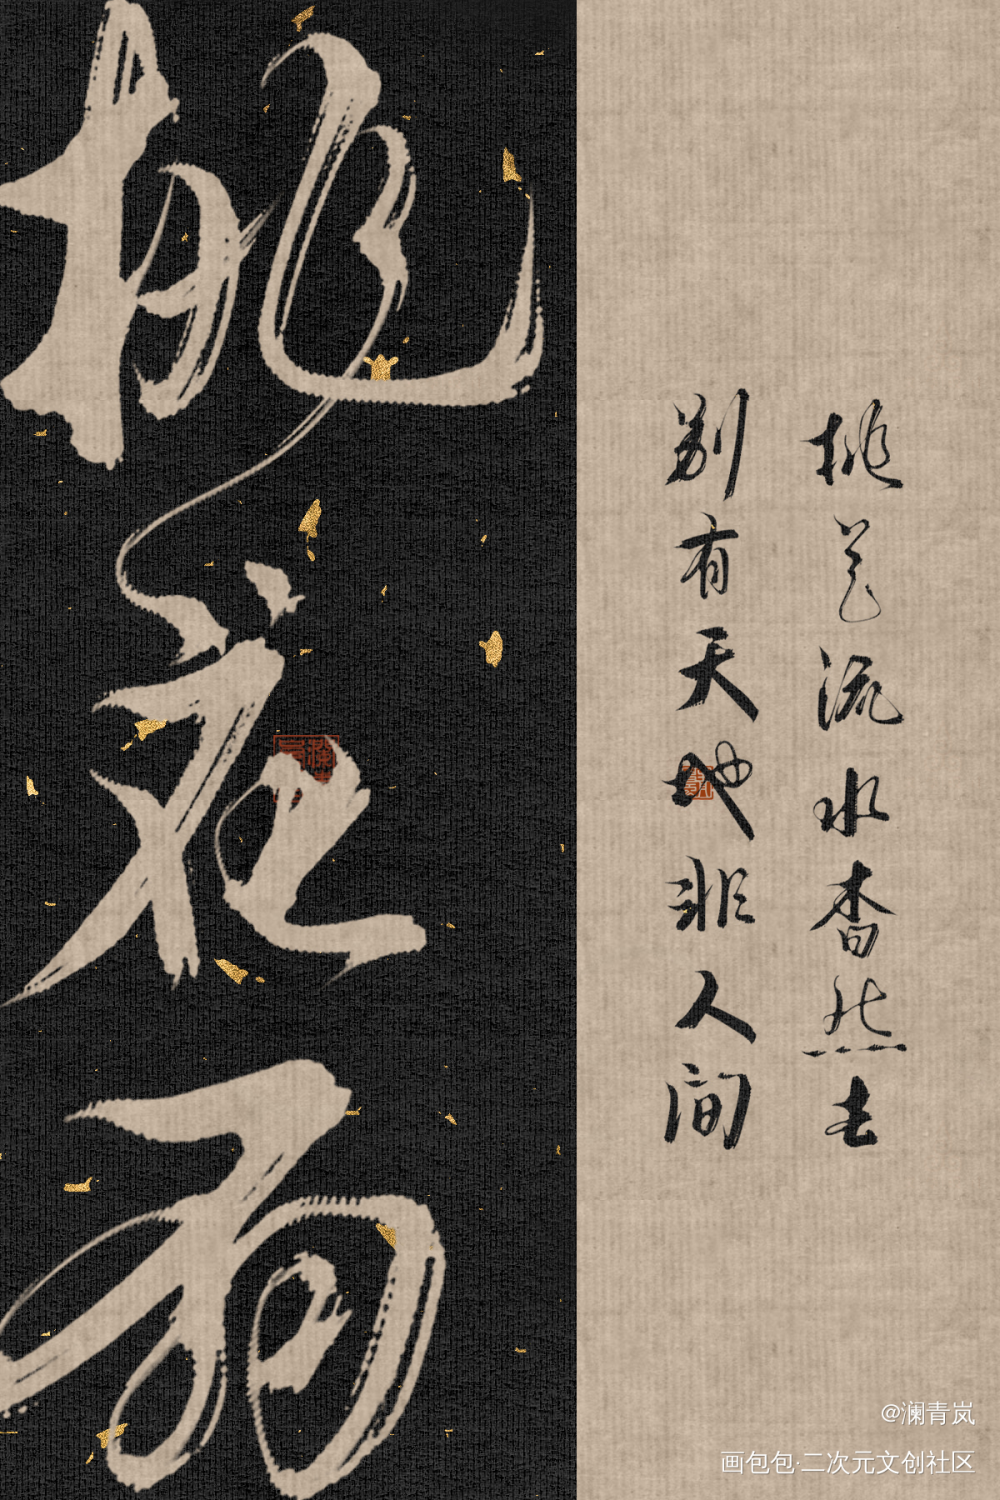 桃花流水杳然去
别有天地非人间
桃花
@澜青岚
画包包·二次元文创社区